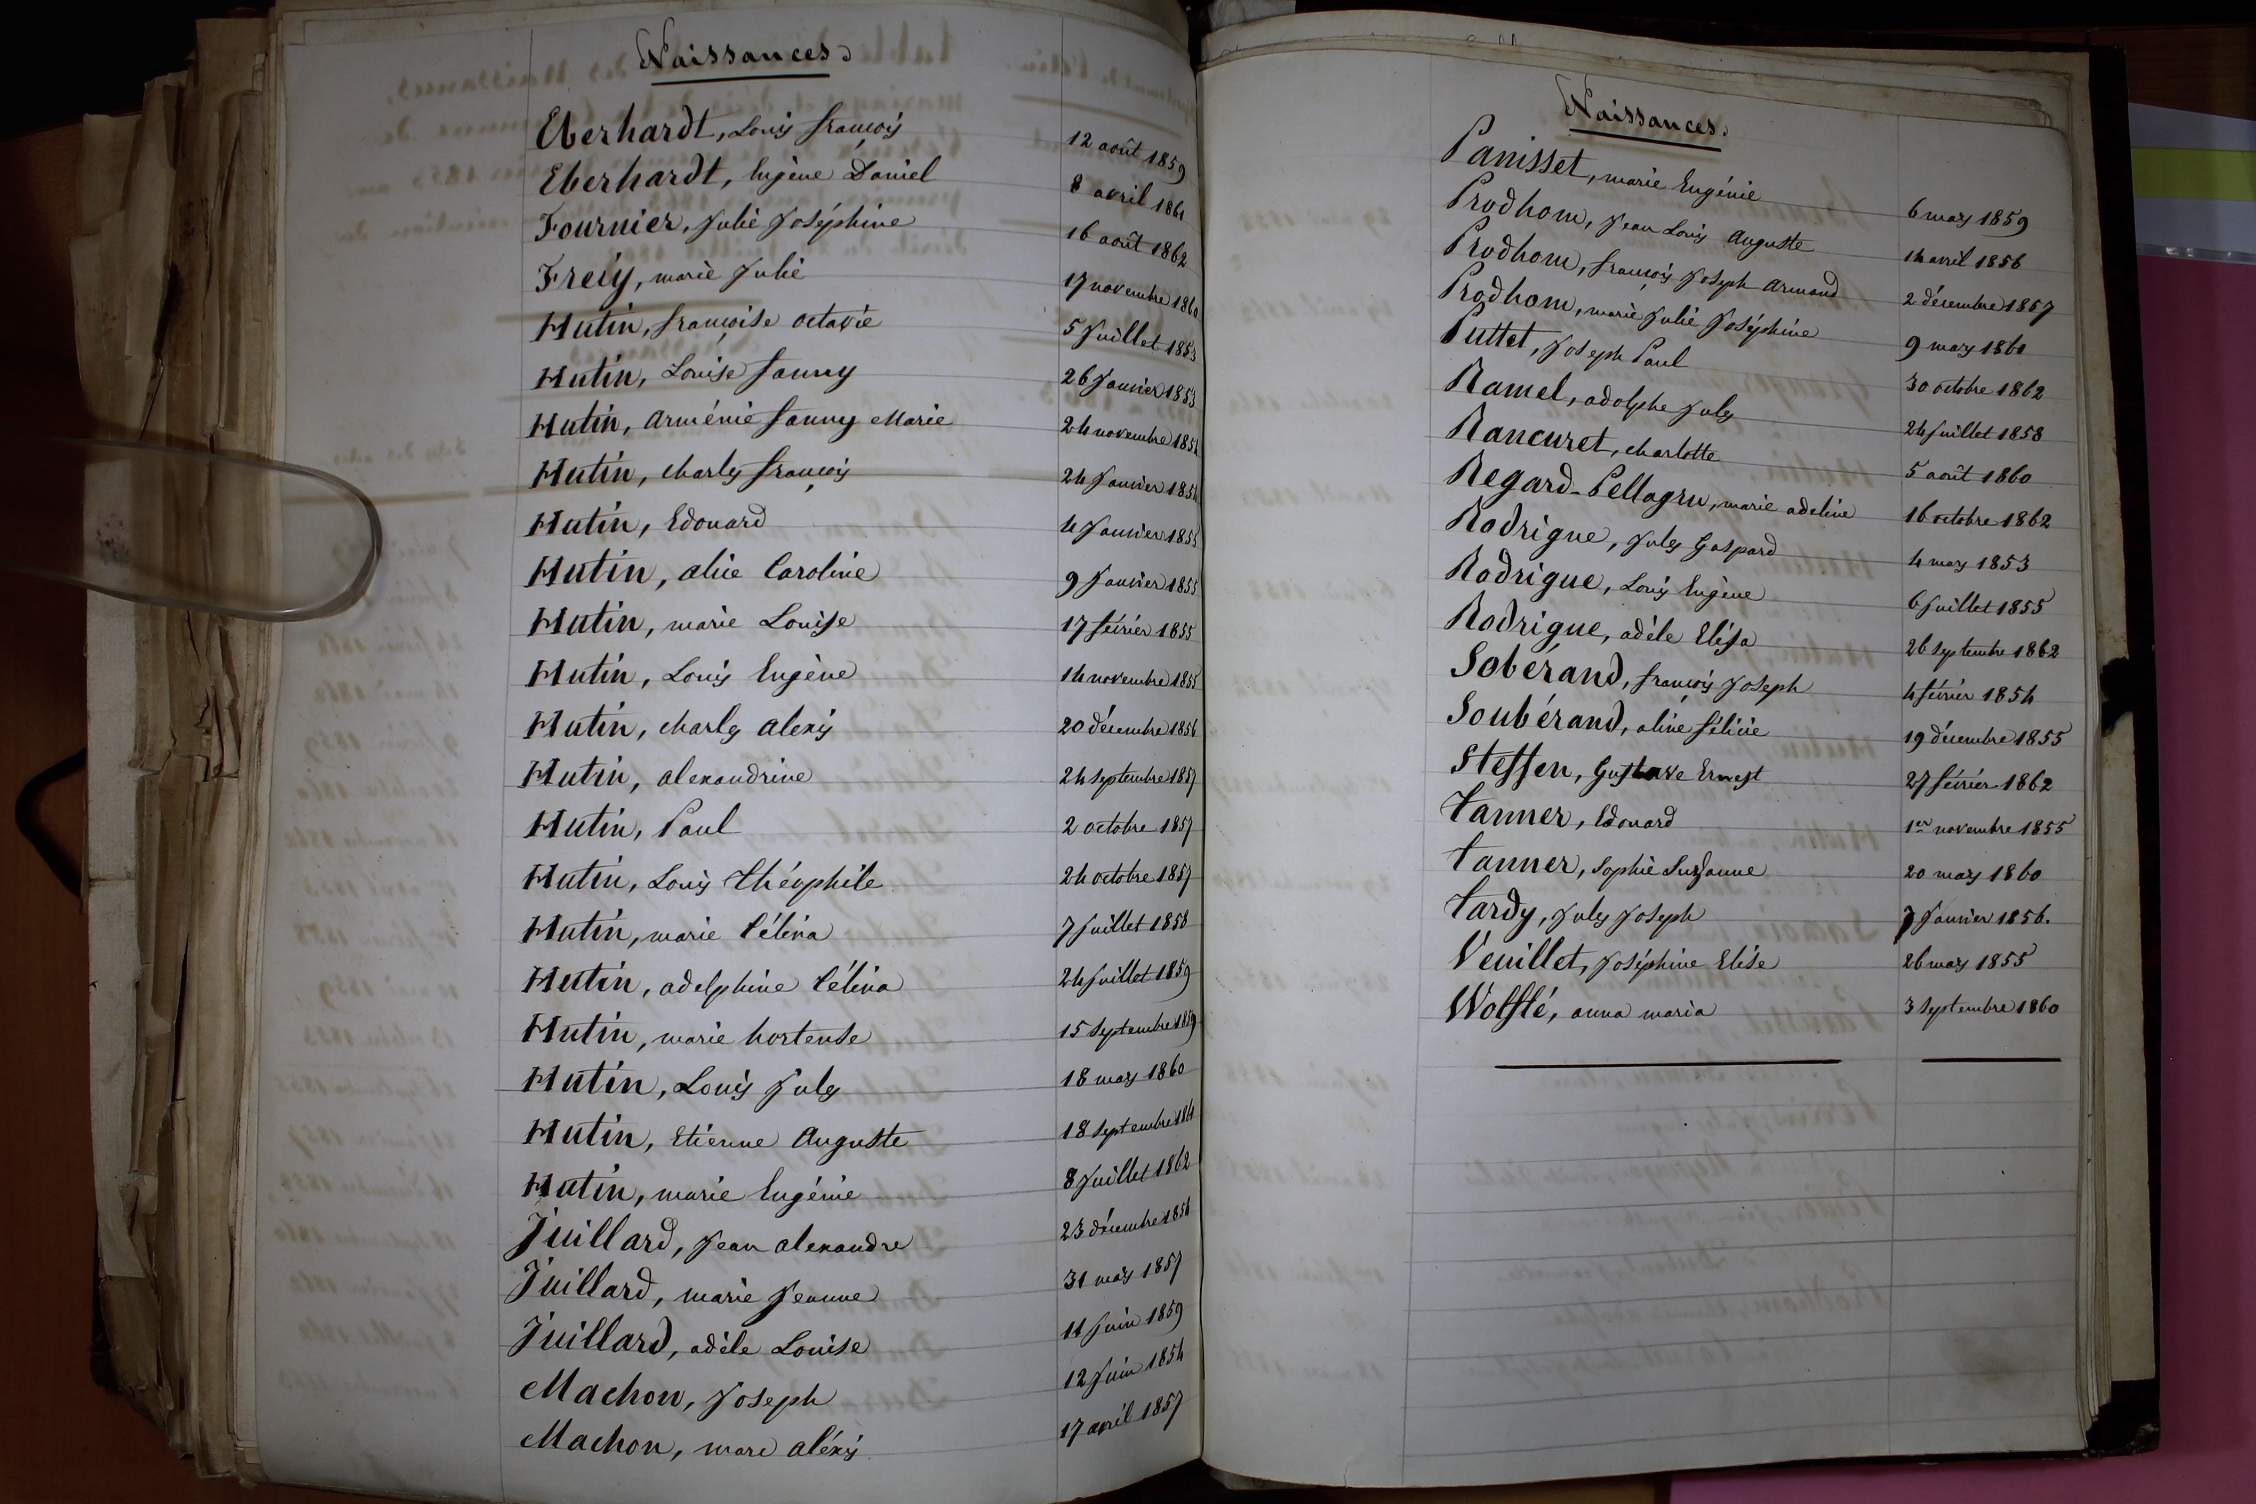 Naissances.
Eberhardt, Louis françois 12 août 1859
Eberhardt, Eugène Daniel 8 avril 1861
Fournier, Julie Joséphine 16 août 1862
Freiy, marie Julie 17 novembre 1860
Hutin, françoise octavie 5 Juillet 1853
Hutin, Louise fanny 26 Janvier 1853
Hutin, Arménie fanny Marie 24 novembre
Hutin, charles françois 24 Janvier 1854
Hutin, Edouard 4 Janvier 1855
Hutin, alice Caroline 9 Janvier 1855
Hutin, marie Louise 17 février 1855
Hutin, Louis Eugène 14 novembre 1855
Hutin, charles alexis 20 décembre 1856
Hutin, alexandrine 24 septembre 1857
Hutin, Paul 2 octobre 1857
Hutin, Louis théophile 24 octobre 1857
Hutin, marie Célina 7 Juillet 1858
Hutin, adelphine Célina 24 Juillet 1859
Hutin, marie hortense 15 septembre 1859
Hutin, Louis Jules 18 mars 1860
Hutin, Etienne Auguste 18 septembre 1861
Hutin, marie Eugénie 8 Juillet 1862
Juillard, Jean alexandre 23 décembre
Juillard, marie Jeanne 31 mars 1857
Juillard, adèle Louise 11 Juin 1859
Machon, Joseph 12 Juin 1854
Machon, marc aléxis 17 avril 1857
Naissances.
Panisset, marie Eugénie 6 mars 1859
Prodhom, Jean Louis Auguste 14 avril 1856
Prodhom, françois Joseph Armand 2 décembre 1857
Prodhom, marie Julie Joséphine 9 mars 1861
Puttet, Joseph Paul 30 octobre 1862
Ramel, adolphe Jules 24 Juillet 1858
Rancuret, charlotte 5 août 1860
Regard-Pellagru, marie adeline 16 octobre 1862
Rodrigue, Jules Gaspard 4 mars 1853
Rodrigue, Louis Eugène 6 Juillet 1855
Rodrigue, adèle Elisa 26 septembre 1862
Sobérand, françois Joseph 4 février 1854
Soubérand, aline félicie 19 décembre 1855
Steffen, Gustave Ernest 27 février 1862
Tanner, Edouard 1er novembre 1855
Tanner, Sophie Suzanne 20 mars 1860
Tardy, Jules Joseph 7 Janvier 1856.
Veuillet, Joséphine Elise 26 mars 1855
Wolflé, anna maria 3 septembre 1860